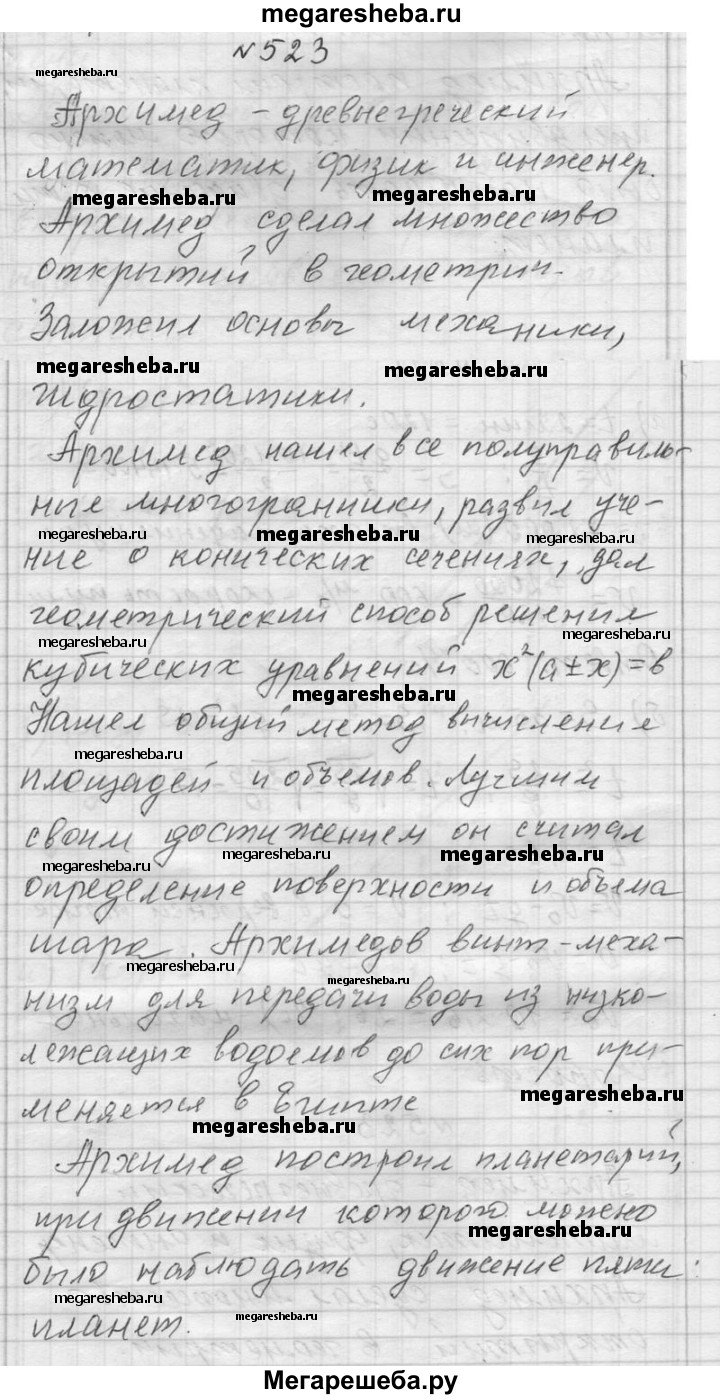 megaresheba.ru
№523
megaresheba.ru
Архимед - древнегреческий
математик, физик и инженер.
megaresheba.ru megaresheba.ru
Архимед сделал множество
открытий в геометрии.
Заложил основы механики,
megaresheba.ru megaresheba.ru
гидростатики.
Архимед нашел все полуправиль-
ные многогранники, развил уче-
megaresheba.ru megaresheba.ru megaresheba.ru
ние о конических сечениях, дал
геометрический способ решения
megaresheba.ru
кубических уравнений x²(a±x)=в
megaresheba.ru
Нашел общий метод вычисления
megaresheba.ru
площадей и объемов. Лучшим
своим достижением он считал
megaresheba.ru megaresheba.ru megaresheba.ru
определение поверхности и объема
шара. Архимедов винт-меха-
megaresheba.ru megaresheba.ru
низм для передачи воды из низко-
лежащих водоемов до сих пор при-
megaresheba.ru
меняется в Египте
megaresheba.ru
Архимед построил планетарий,
при движении которого можно
megaresheba.ru
было наблюдать движение пяти
megaresheba.ru megaresheba.ru
планет.
Мегарешеба.ру